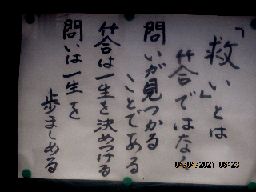 「救い」とは
答ではなく
問いが見つかる
ことである
答は一生を決めつける
問いは一生を
歩ましめる